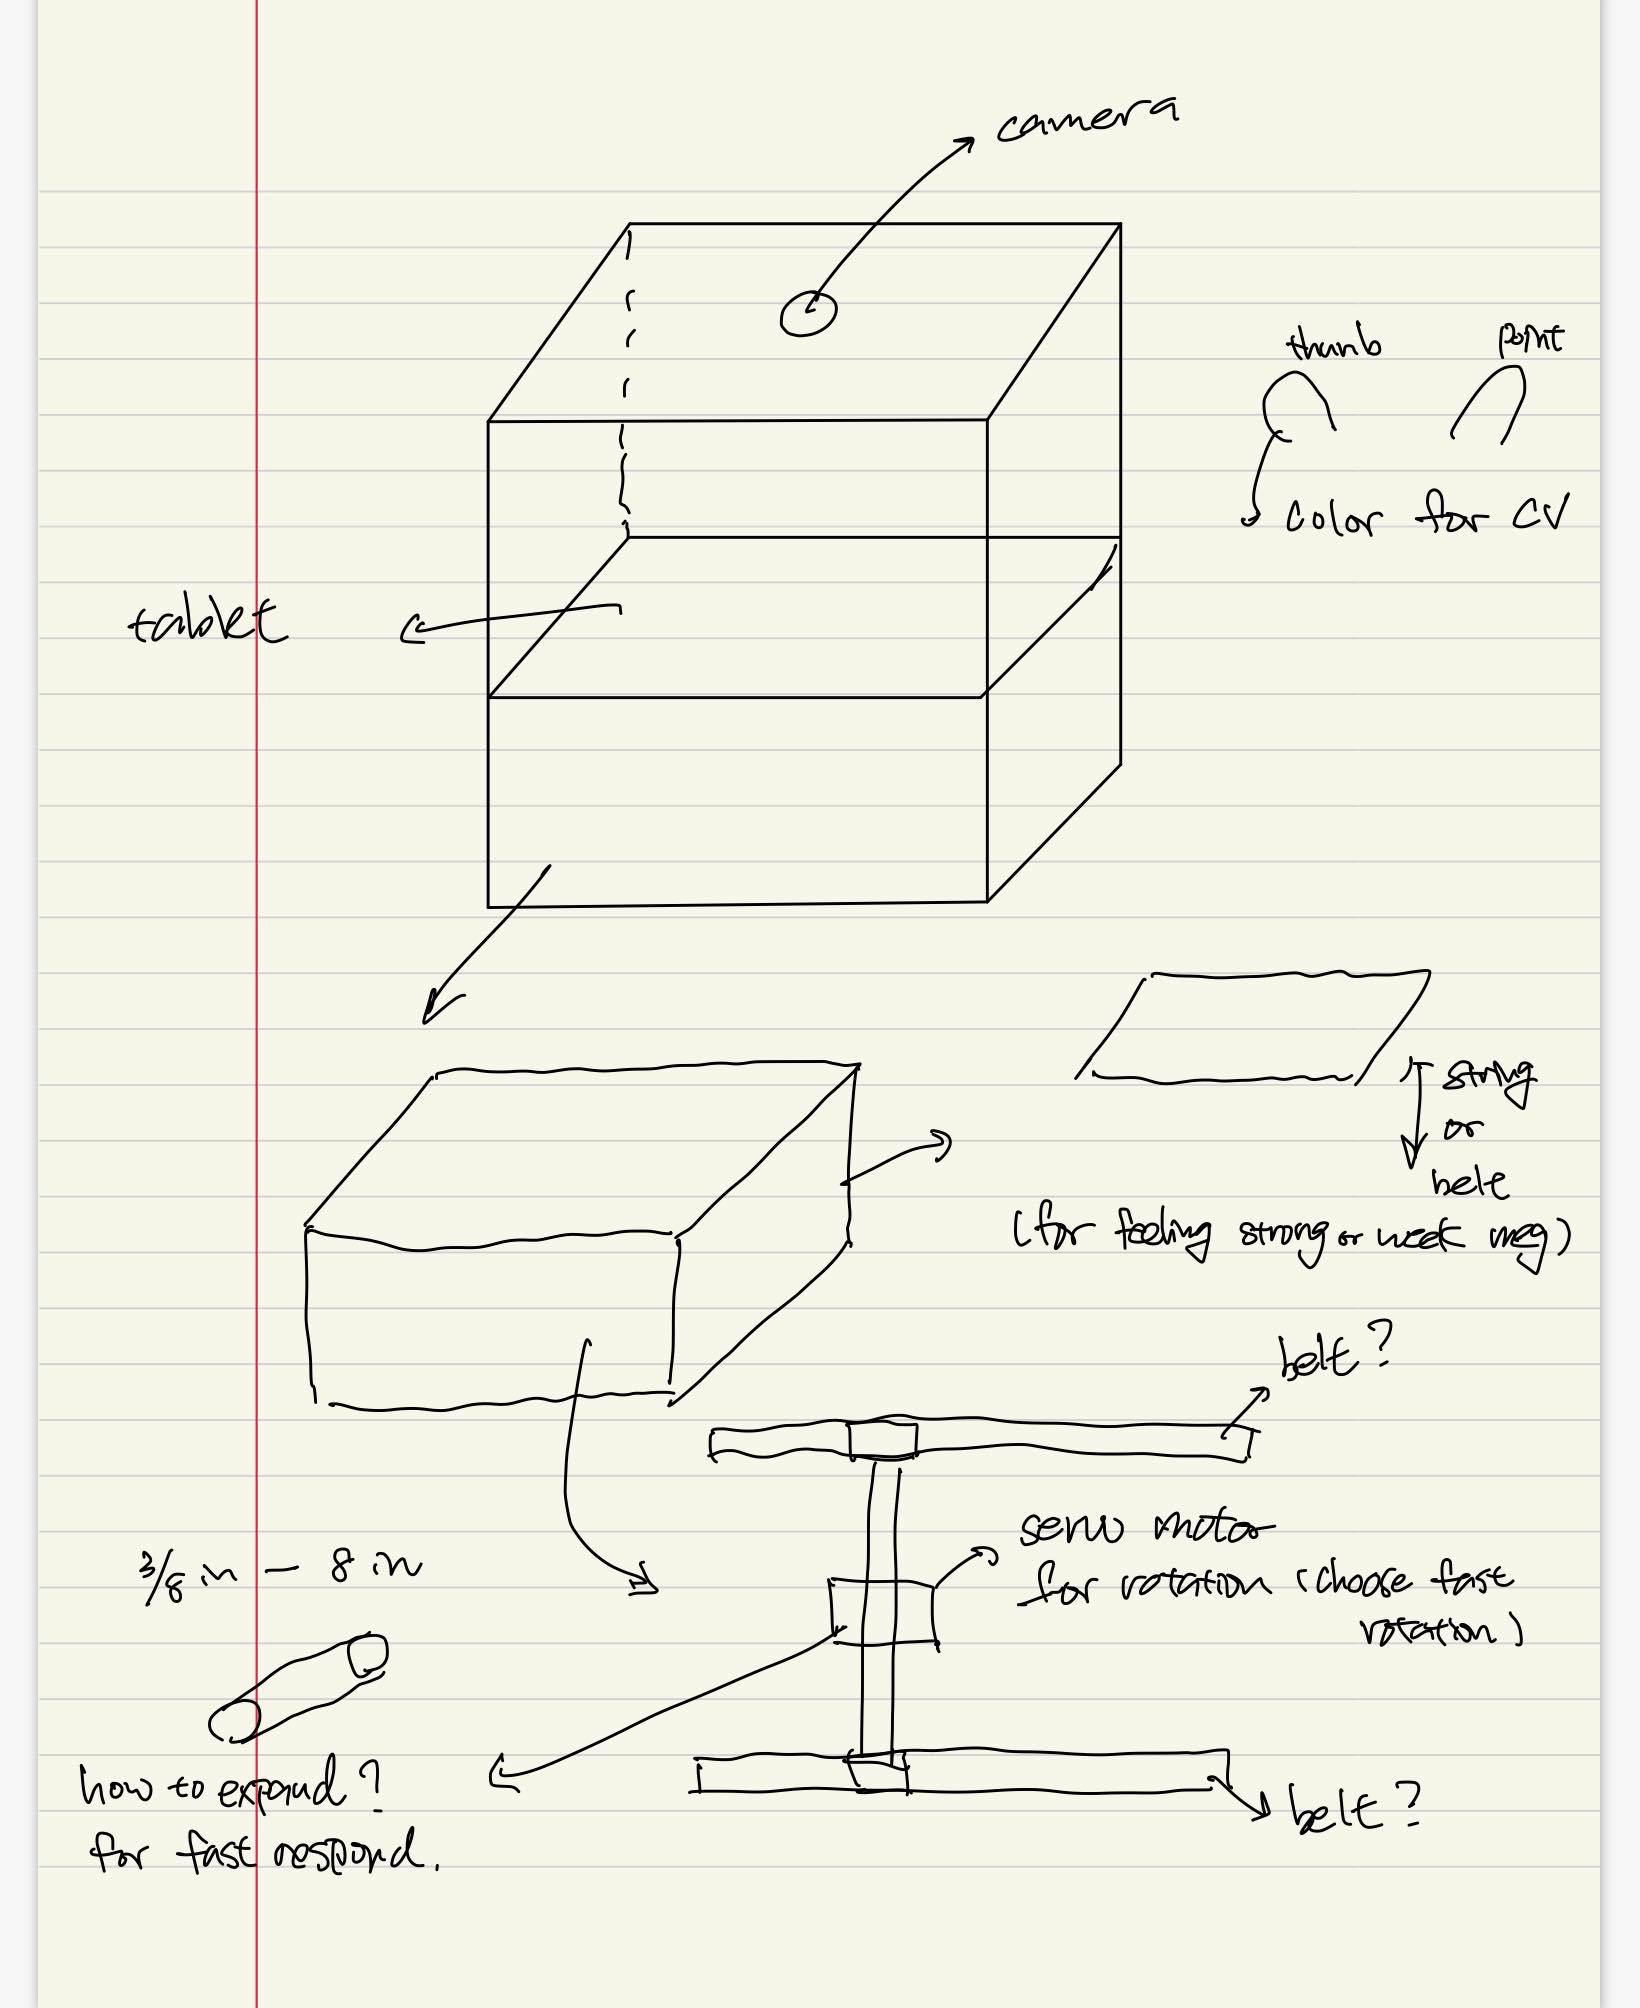 camera
thumb
point
color for CV
tablet
string
or
belt
(for feeling strong or week meg)
belt?
servo motor
for rotation (choose fast
rotation)
3/8 in - 8 in
how to expand?
for fast respond.
belt?